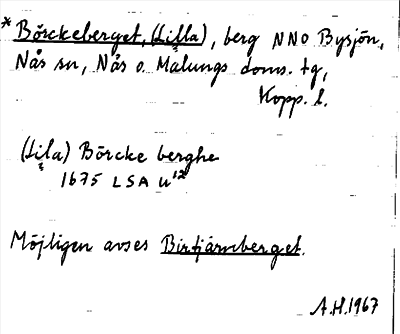 *Börckeberget, (Lilla), berg NNO Bysjön,
Nås sn, Nås o. Malungs doms. tg,
Kopp. l.
(Lila) Börcke berghe
1675 LSA U 12
Möjligen avses Birtjärnberget.
A.H. 1967